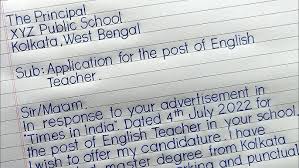 The Principal
XYZ Public School
Kolkata, West Bengal
Sub: Application for the post of English
Teacher.
Sir/Ma'am.
In response to your advertisement in
"Times in India". Dated 4th July 2022 for
the post of English Teacher in your school.
wish to offer my candidature. I have
master degree from Kolkata
and punctual